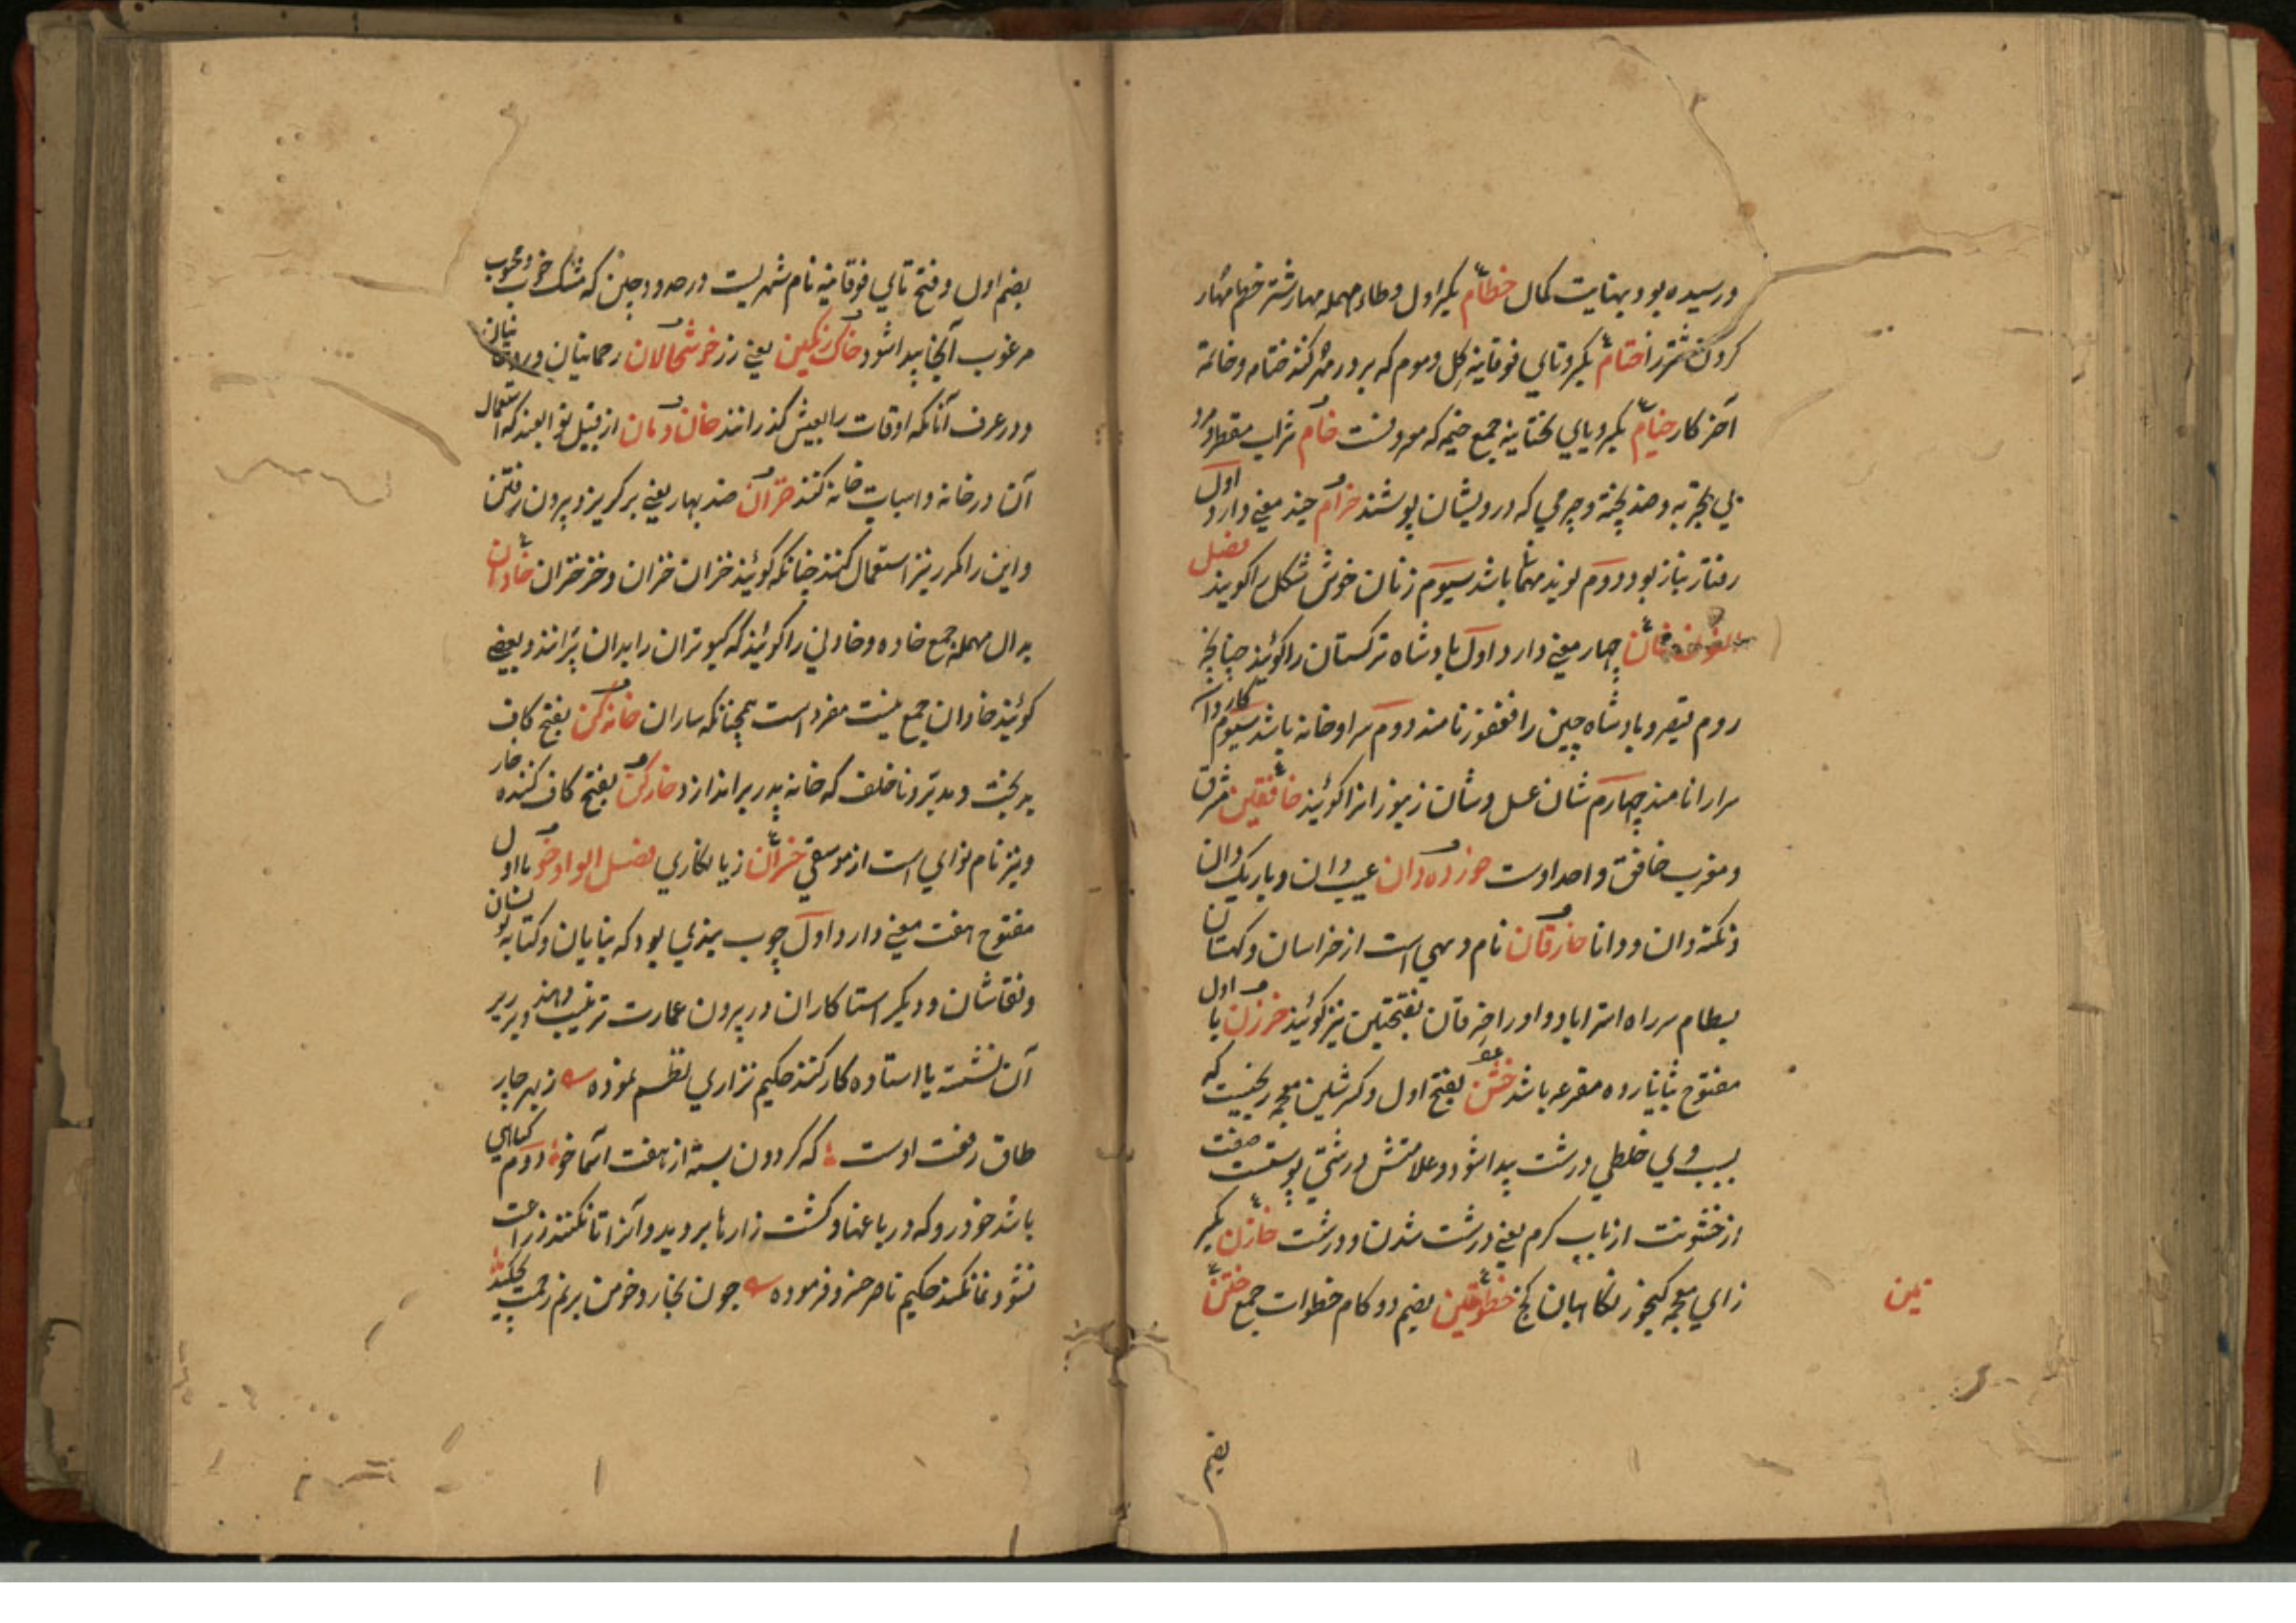 ورسیده بود بهنایت کمال خطام بکسر اول وطاء مهمله مهار شتر خطم مهار
کردن شتر را ختام بکسر وتای فوقانیه کل وموم که بر در مهر کنند ختام وخاتمة
آخر کار خیام بکسر ویای تحتانیه جمع خیمه که معروفست خام شراب مقطر ومرد
بی تجربه وضد پخته وچرمی که درویشان پوشند خرام چند معنی دارد اول
رفتار بناز بود دوم نوید مهمانی باشد سیوم زنان خوش شکل را کویند فصل
النون خان چهار معنی دارد اول پادشاه ترکستان را کویند چنانچه
روم قیصر وپادشاه چین را فغفور نامند دوم سرا وخانه باشد سیوم کاروان
سرا را نامند چهارم شان عسل وشان زنبور را نیز کویند خافقین مشرق
ومغرب خافق واحد اوست خورده دان عیب دان وباریک دان
ونکته دان ودانا خارقان نام دهی است از خراسان وکهستان
بسطام سر راه استراباد واو را خرقان بفتحتین نیز کویند خرزن با اول
مفتوح بثانی زده مقرعه باشد خشن بفتح اول وکسر شین معجمه رنجیست که
بسبب وی خلطی درشت پیدا شود وعلامتش درشتی پوست صفت
از خشونت از باب کرم یعنی درشت شدن ودرشت خازن بکسر
زای معجمه کنجور نکاهبان کنج خطوتین بضم دو کام خطوات جمع ختن
بضم
بضم اول وفتح تای فوقانیه نام شهریست در حدود چین که مشک خوب ومحبوب
مرغوب آنجا پیدا شود خاک رنکین یعنی زر خوشحالان رحمانیان
ودر عرف آنانکه اوقات را بعیش کذرانند خان ومان از قبیل توابعند که استعمال
آن در خانه واسباب خانه کنند خزان ضد بهار یعنی برکریز وبیرون رفتن
واین را مکرر نیز استعمال کنند چنانکه کویند خزان خزان وخز خزان خادان
بدال مهمله جمع خاده وخادان را کویند که کبوتران را بدان پرانند وبعضی
کویند خادان جمع نیست مفرد است همچنانکه ساران خانه کن بفتح کاف
بدبخت ومدبر وناخلف که خانه پدر براندازد خارکن بفتح کاف کننده خار
ونیز نام نوای است از موسیقی خسران زیانکاری فصل الواو خو با اول
مفتوح هفت معنی دارد اول چوب بندی بود که بنایان وکتابه نویسان
ونقاشان ودیکر استاکاران در بیرون عمارت ترتیب دهند وبر زبر
آن نشسته یا استاده کار کنند حکیم نزاری نظم نموده زبهر چار
طاق رفعت اوست که کردون بسته از هفت آسما خو دوم کیاهی
باشد خودرو که در باغها وکشت زارها بروید وآنرا تا نکنند زراعت
نشو ونما نکند حکیم ناصر خسرو فرموده چون نخارد خو من برنم رحمت